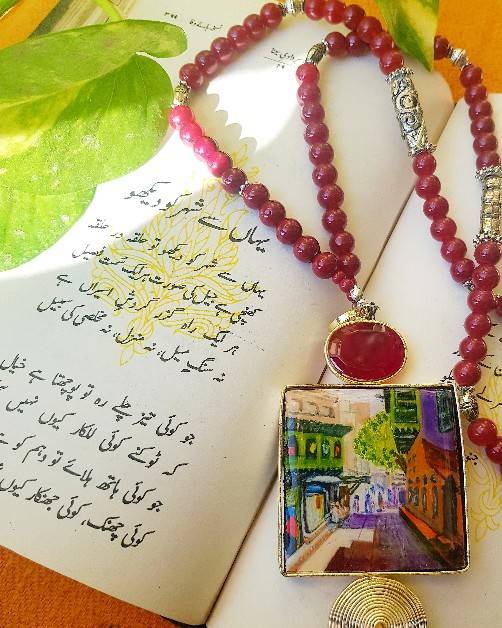 نسخہ ہائے وفا
وادی سینا
یہاں سے شہر کو دیکھو
یہاں سے شہر کو دیکھو تو حلقہ در حلقہ
کھنچی ہے جیل کی صورت ہر ایک سمت فصیل
ہر ایک راہ گزر گردشِ اسیراں ہے
نہ سنگِ میل، نہ منزل، نہ مخلصی کی سبیل
جو کوئی تیز چلے رہ تو پوچھتا ہے خیال
کہ ٹوکنے کوئی للکار کیوں نہیں
جو کوئی ہاتھ ہلائے تو وہم کو ہے
کوئی چھنک، کوئی جھنکار کیوں